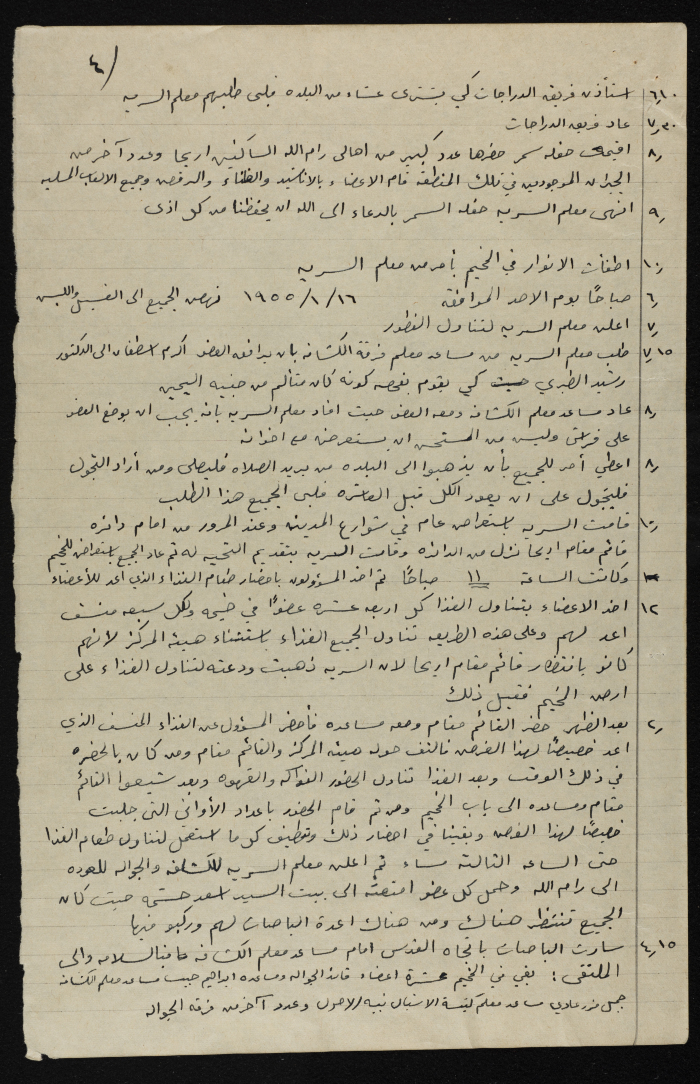 ٤/
٦٫١٠ استأذن فريق الدراجات كي يشتري عشاء من البلده فلبى طلبهم معلم السريه
٧٫٣٠ عاد فريق الدراجات
٨٫ اقيمت حفله سمر حضرها عدد كبير من اهالي رام الله الساكنين اريحا وعدد آخر من
الجيران الموجودين في تلك المنطقه قام الاعضاء بالاناشيد والغناء والرقص وجميع الالعاب المسليه
٩٫ انهى معلم السريه حفله السمر بالدعاء الى الله ان يحفظنا من كل اذى
١٠٫ اطفأت الانوار في المخيم بأمر من معلم السريه
٦٫ صباحًا يوم الاحد الموافقة ١٦/١/١٩٥٥ نهض الجميع الى الغسيل واللبس
٧٫ اعلن معلم السريه لتناول الفطور
٧٫١٥ طلب معلم السريه من مساعد معلم فرقة الكشافه بان يرافق العضو اكرم اسطفان الى الدكتور
رشيد الطبري كي يقوم بفحصه كونه كان متألم من جنبيه اليمين
٨٫ عاد مساعد معلم الكشافه ومعه العضو حيث افاد معلم السريه بانه يجب ان يوضع العضو
على فراش وليس من المستحسن ان يستعرض مع اخوانه
٨٫ اعطي أمر للجميع بأن يذهبوا الى البلده من يريد الصلاه فليصلي ومن أراد التجول
فليتجول على ان يعود الكل قبل العاشره فلبى الجميع هذا الطلب
١٠٫ قامت السريه باستعراض عام في شوارع المدينه وعند المرور من امام دائره
قائم مقام اريحا نزل من الدائره وقامت السريه بتقديم التحيه له ثم عاد الجميع باستعراض للمخيم
وكانت الساعة ١١ صباحًا ثم اخذ المسؤولون باحضار طعام الغذاء الذي اعد للأعضاء
١٢ اخذ الاعضاء بتناول الغذا كل اربعه عشره عضوًا في خيمه ولكل سبعه منسف
اعد لهم وعلى هذه الطريقه تناول الجميع الغذاء باستثناء هيئة المركز لأنهم
كانو بانتظار قائم مقام اريحا لان السريه ذهبت ودعته لتناول الغذاء على
ارض المخيم فقبل ذلك
٢٫ بعد الظهر حضر القائم مقام ومعه مساعده فأحضر المسؤول عن الغذاء المنسف الذي
اعد خصيصًا لهذا الغرض فالتف حوله هيئه المركز والقائم مقام ومن كان بالحضره
في ذلك الوقت وبعد الغذا تناول الحضور الفواكه والقهوه وبعد شيعوا القائم
مقام ومساعده الى باب المخيم ومن ثم قام الحضور باعداد الأواني التي جلبت
خصيصًا لهذا الغرض وبقينا في احضار ذلك وتنظيف كل ما استعمل لتناول طعام الغذا
حتى الساعه الثالثة مساء ثم اعلن معلم السريه للكشافه والجواله للعوده
الى رام الله وحمل كل عضو امتعته الى بيت السيد اسعد حشمه حيث كان
الجميع تنتظر هناك ومن هناك اعدة الباصات لهم وركبو فيها
٤٫١٥ سارت الباصات باتجاه القدس امام مساعد معلم الكشافه فالسلامه والى
الملتقى: بقي في المخيم عشرة اعضاء قائد الجواله ومساعده ابراهيم حبيب مساعد معلم الكشافه
جميل مساعد معلم نبيه الاصول وعدد آخر من فرقه الجواله